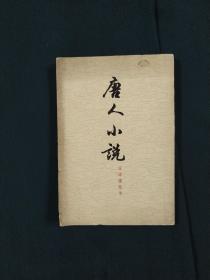 唐人小說